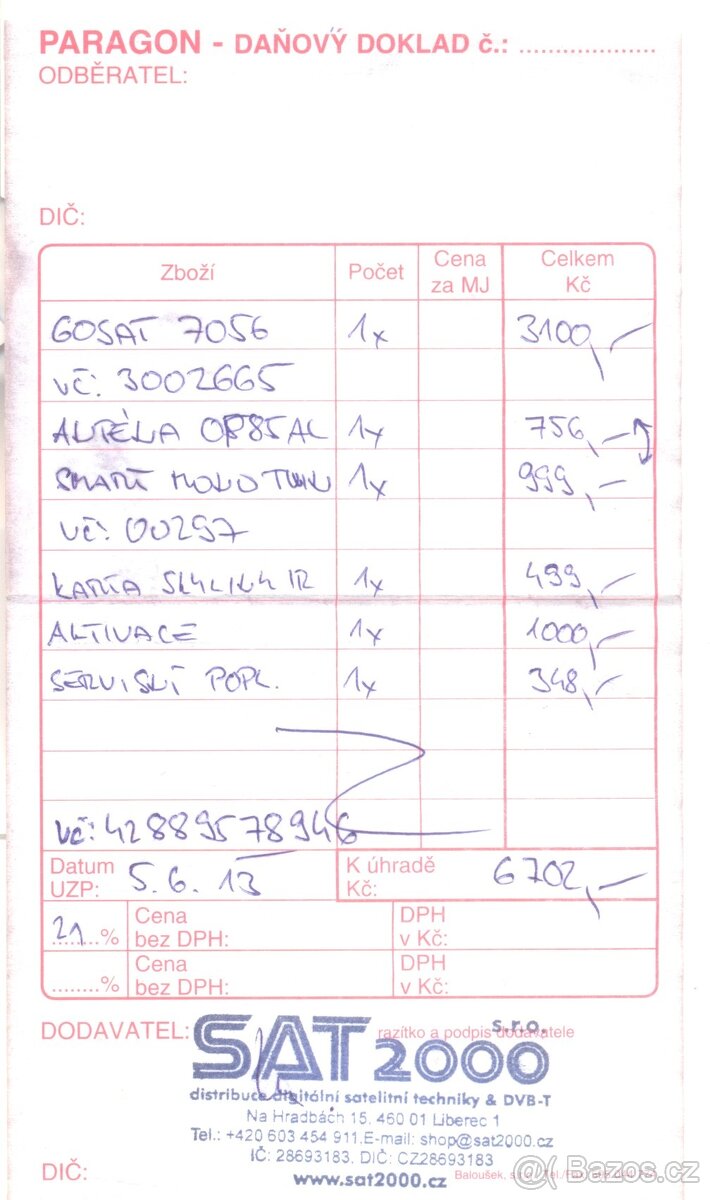 PARAGON - DAŇOVÝ DOKLAD č.: ....................
ODBĚRATEL:
DIČ:
Zboží Počet Cena za MJ Celkem Kč
GOSAT 7056 1x 3100,-
VČ: 3002665
ANTÉNA OP85AL 1x 756,-
SMART MONO TWIN 1x 999,-
VČ: 00297
KARTA SKYLINK IR 1x 499,-
AKTIVACE 1x 1000,-
SERVISNÍ POPL. 1x 348,-
VČ: 42889578946
Datum UZP: 5.6.13 K úhradě Kč: 6702,-
21 % Cena bez DPH: DPH v Kč:
........% Cena bez DPH: DPH v Kč:
DODAVATEL: razítko a podpis dodavatele
SAT 2000 s.r.o.
distribuce digitální satelitní techniky & DVB-T
Na Hradbách 15, 460 01 Liberec 1
Tel.: +420 603 454 911, E-mail: shop@sat2000.cz
IČ: 28693183, DIČ: CZ28693183
DIČ: www.sat2000.cz
Baloušek, s.r.o. Tel./Fax
@ Bazos.cz